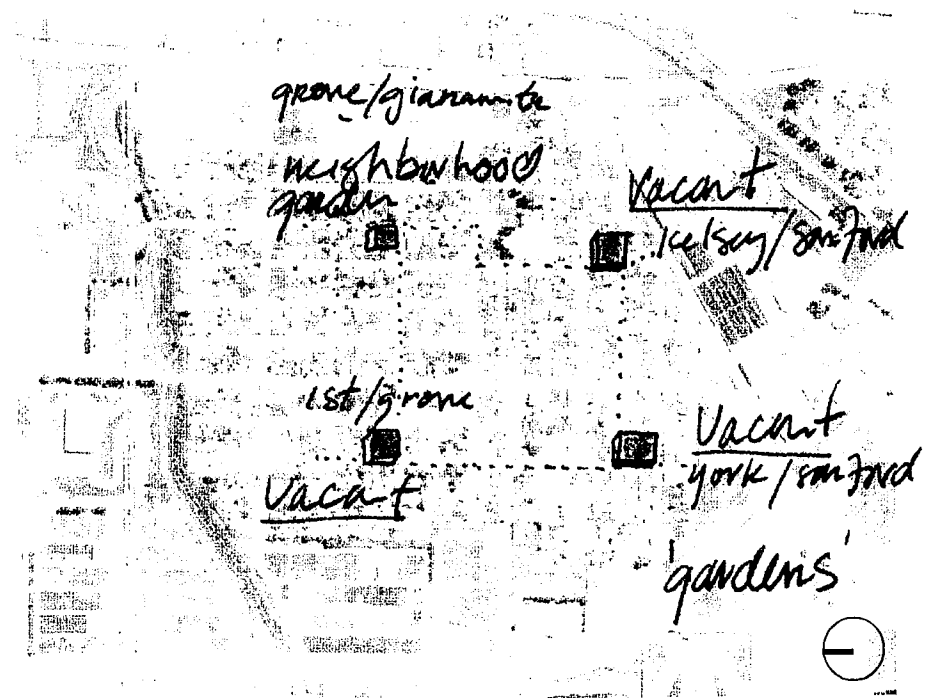 grove/giannamita
neighborhood
garden
Vacant
kelsey/sanford
1st/grove
Vacant
Vacant
york/sanford
'gardens'